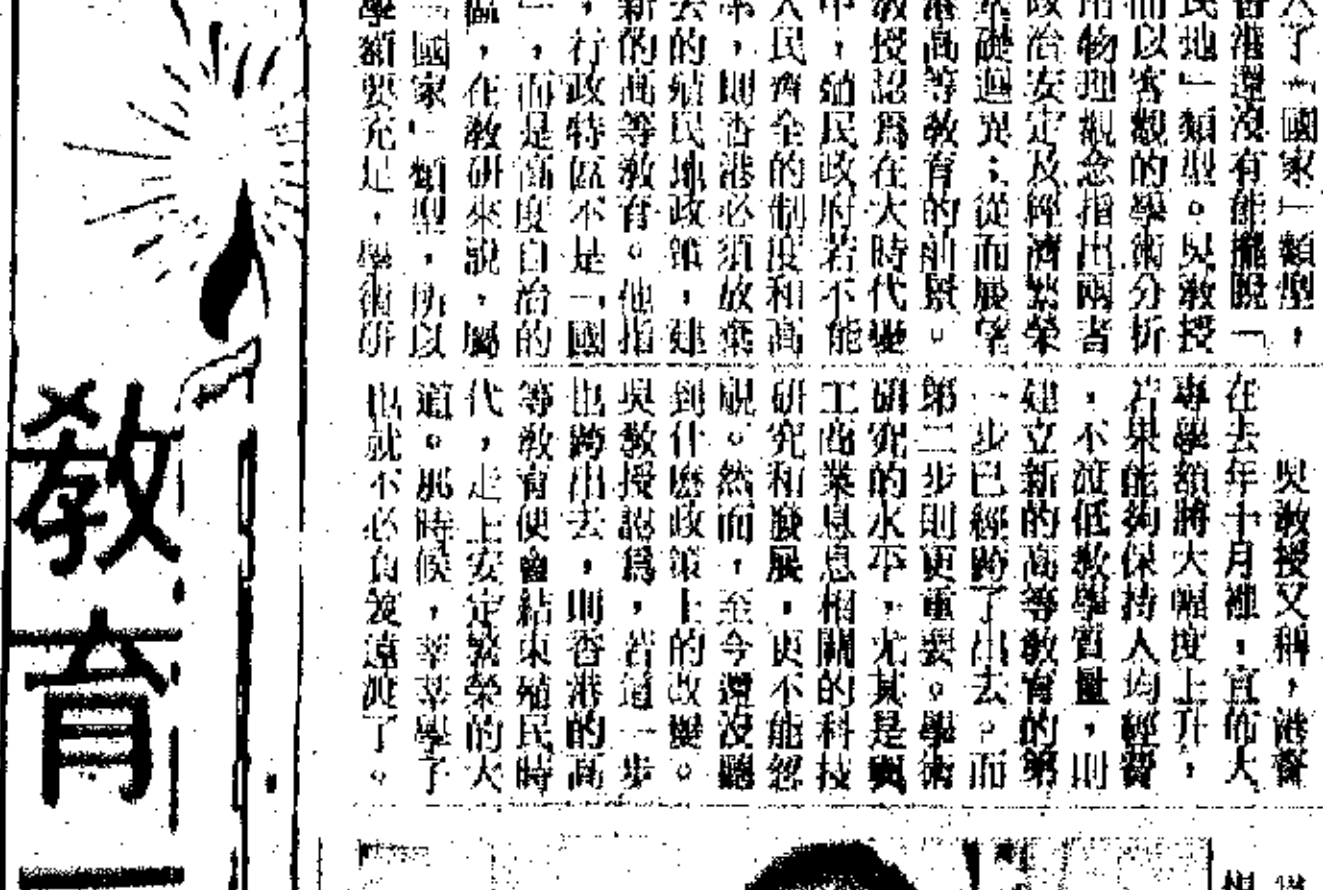 了「國家」類型，
香港還沒有能擺脫「
民地」類型。吳教授
而以客觀的學術分析
用物理觀念指出兩者
政治安定及經濟繁榮
礎迥異；從而展望
港高等教育的前景。
教授認爲在大時代變
中，殖民政府若不能
人民齊全的制度和高
，則香港必須放棄
去的殖民地政策，建
新的高等教育。他指
，行政特區不是「國
」，而是高度自治的
區，在教研來說，屬
「國家」類型，所以
學額要充足，學術研
吳教授又稱，港督
在去年十月裡，宣佈大
專學額將大幅度上升，
若果能夠保持人均經費
，不渡低教學質量，則
建立新的高等教育的第
一步已經跨了出去。而
第二步則更重要。學術
研究的水平，尤其是與
工商業息息相關的科技
研究和發展，更不能忽
視。然而，至今還沒聽
到什麽政策上的改變。
吳教授認爲，若這一步
也跨出去，則香港的高
等教育便會結束殖民時
代，走上安定繁榮的大
道。那時候，莘莘學子
也就不必負笈遠渡了。
教育